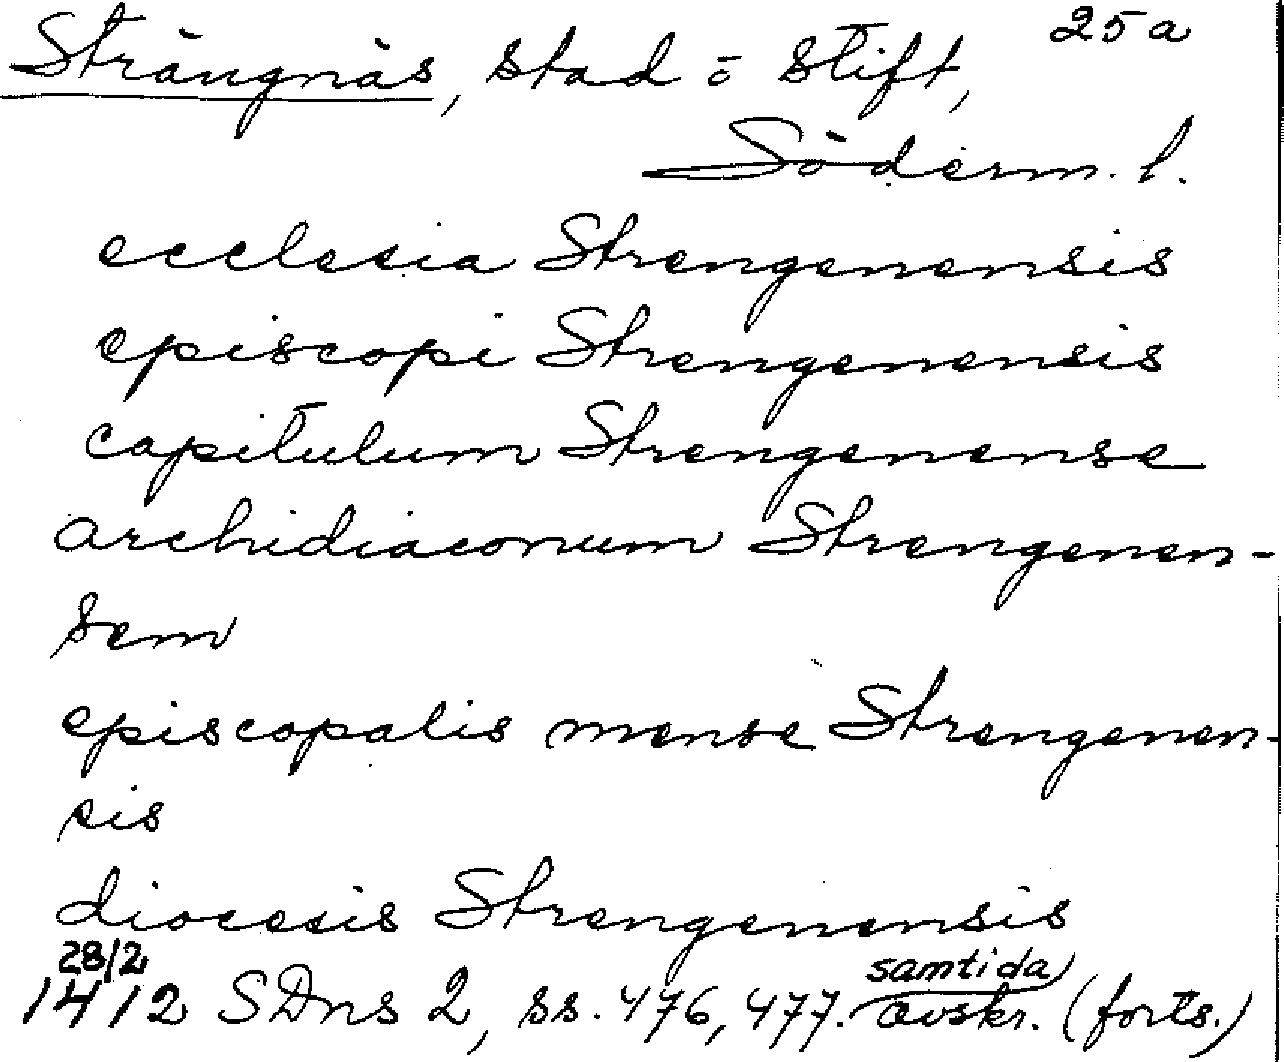 25a
Strängnäs, stad o stift,
Söderm. l.
ecclesia Strengenensis
episcopi Strengenensis
capitulum Strengenense
archidiaconum Strengenen-
sem
episcopalis mense Strengenen-
sis
diocesis Strengenensis
28/2 samtida
1412 SDns 2, ss. 476, 477. avskr. (forts.)